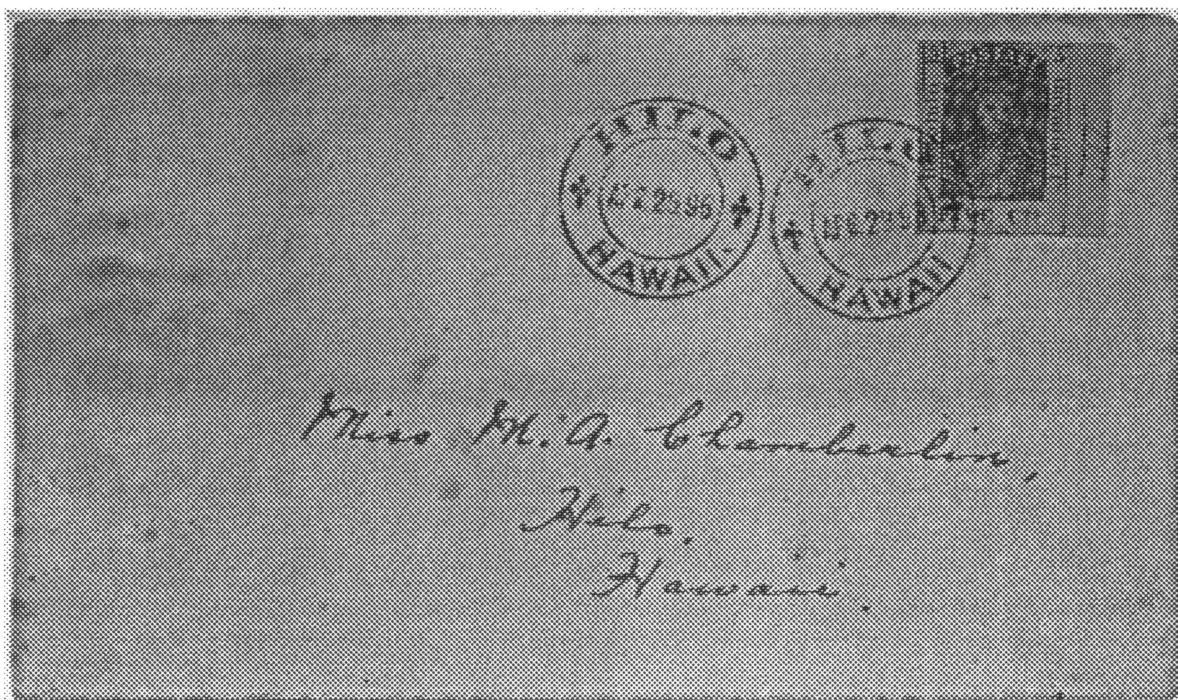 HILO
HAWAII.
HILO
HAWAII
Miss M. A. Chamberlin,
Hilo,
Hawaii.